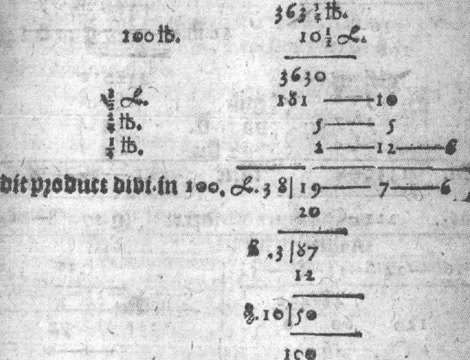 363 3/4 ℔.
100 ℔. 10 1/2 L.
3630
1/2 L. 181 — 10
1/2 ℔. 5 — 5
1/4 ℔. 2 — 12 — 6
dit product divi. in 100. L. 38 | 19 — 7 — 6
20
ß. 3 | 87
12
10 | 50
100